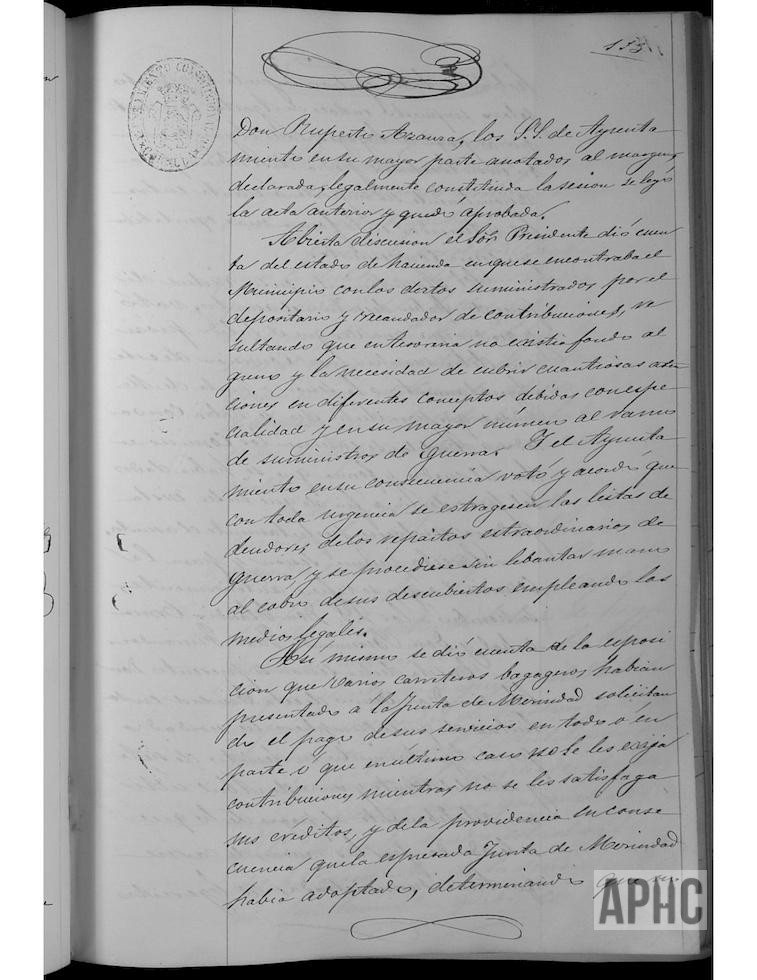 153
Don Ruperto Azanza, los S.S. de Ayunta
miento en su mayor parte anotados al margen,
declarada legalmente constituida la sesion se leyó
la acta anterior y quedó aprobada.
Abierta discusion el Sor. Presidente dió cuen
ta del estado de hacienda en que se encontraba el
Municipio con los datos suministrados por el
depositario y recaudador de contribuciones, re
sultando que en tesoreria no existia fondo al
guno y la necesidad de cubrir cuantiosas aten
ciones en diferentes conceptos debidas con espe
cialidad y en su mayor número al ramo
de suministros de guerra. Y el Ayunta
miento en su consecuencia votó y acordó que
con toda urgencia se estragesen las listas de
deudores de los repartos estraordinarios de
guerra, y se procediese sin lebantar mano
al cobro de sus descubiertos empleando los
medios legales.
Asi mismo se dió cuenta de la esposi
cion que varios carreteros bagageros habian
presentado á la Junta de Merindad solicitan
do el pago de sus servicios en todo ó en
parte ó que en último caso no se les exija
contribuciones mientras no se les satisfaga
sus créditos, y de la providencia en conse
cuencia que la espresada Junta de Merindad
habia adoptado, determinando que
APHC